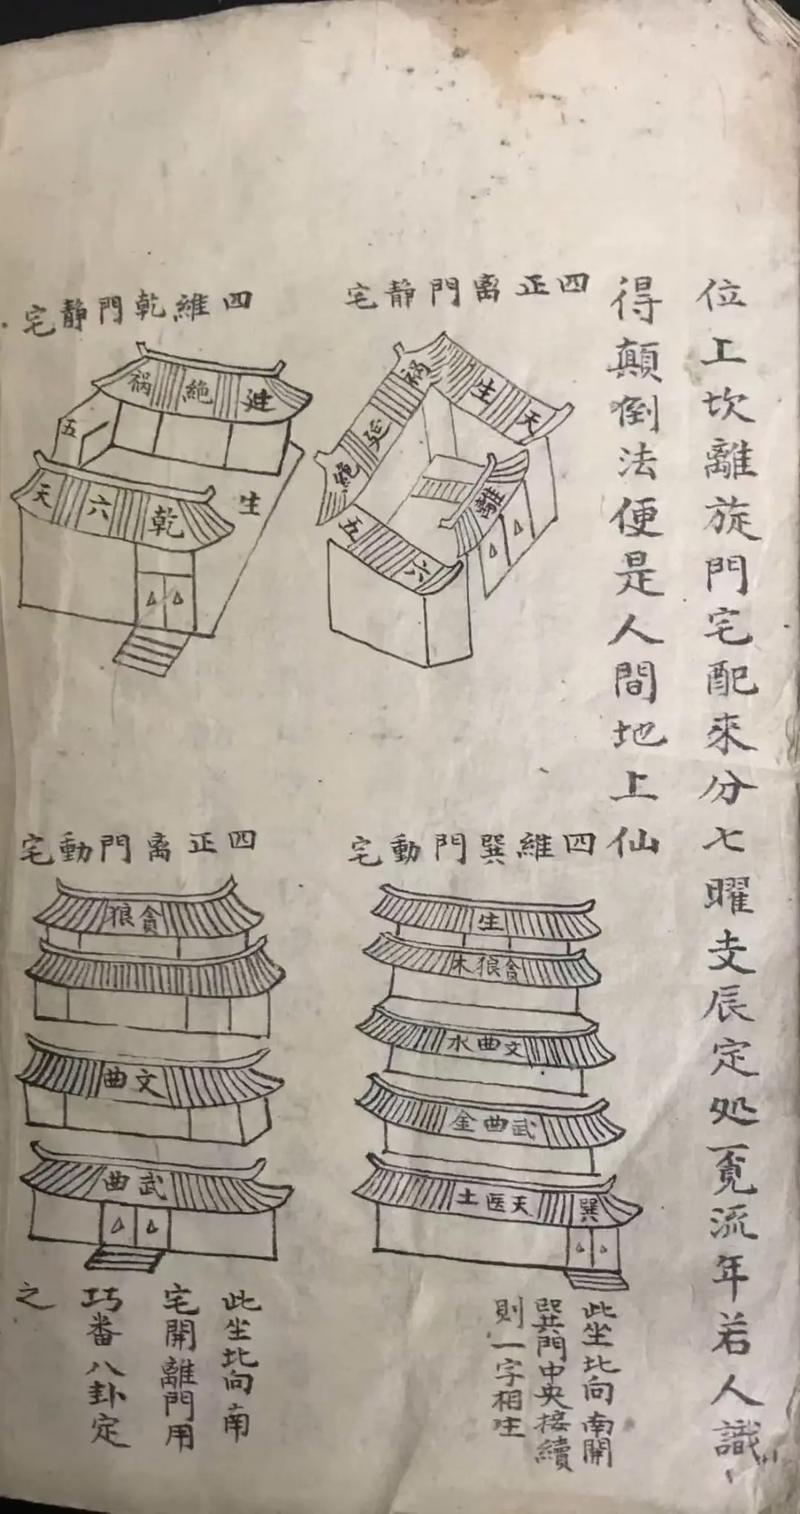 位上坎離旋門宅配來分七曜支辰定処覓流年若人識
得顛倒法便是人間地上仙
四正离門靜宅
天
生
祸
延
絶
五
六
離
四維乾門靜宅
延絶祸
五
生
乾六天
四維巽門動宅
生
贪狼木
文曲水
武曲金
天医土
巽
此坐北向南開
巽門中央接續
則一字相生
四正离門動宅
贪狼
文曲
武曲
此坐北向南
宅開離門用
巧番八卦定
之